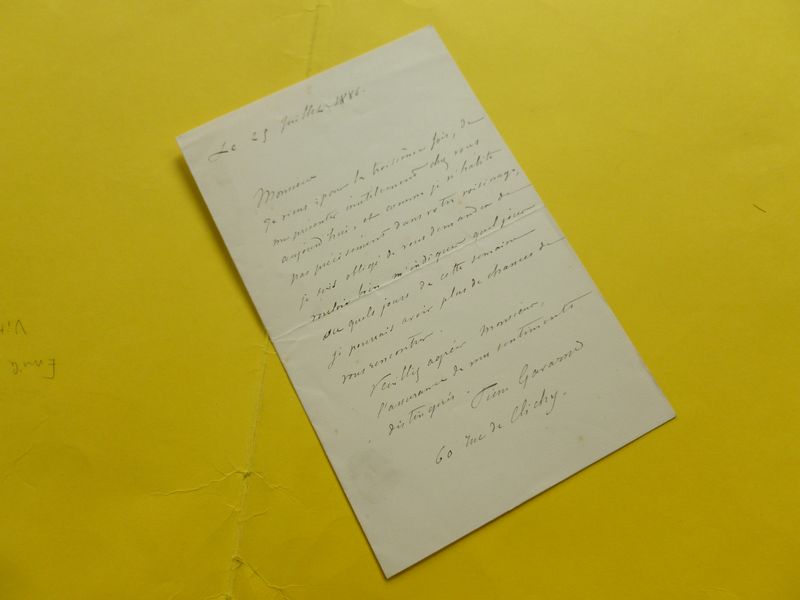 Le 25 Juillet 1886.
Monsieur
Je viens pour la troisième fois, de
me présenter inutilement chez vous
aujourd'hui, et comme je n'habite
pas précisément dans votre voisinage,
je suis obligé de vous demander de
vouloir bien m'indiquer quel jour
ou quels jours de cette semaine
je pourrais avoir plus de chances de
vous rencontrer.
Veuillez agréer Monsieur,
l'assurance de mes sentiments
distingués. Gavarni
60 rue de Clichy.